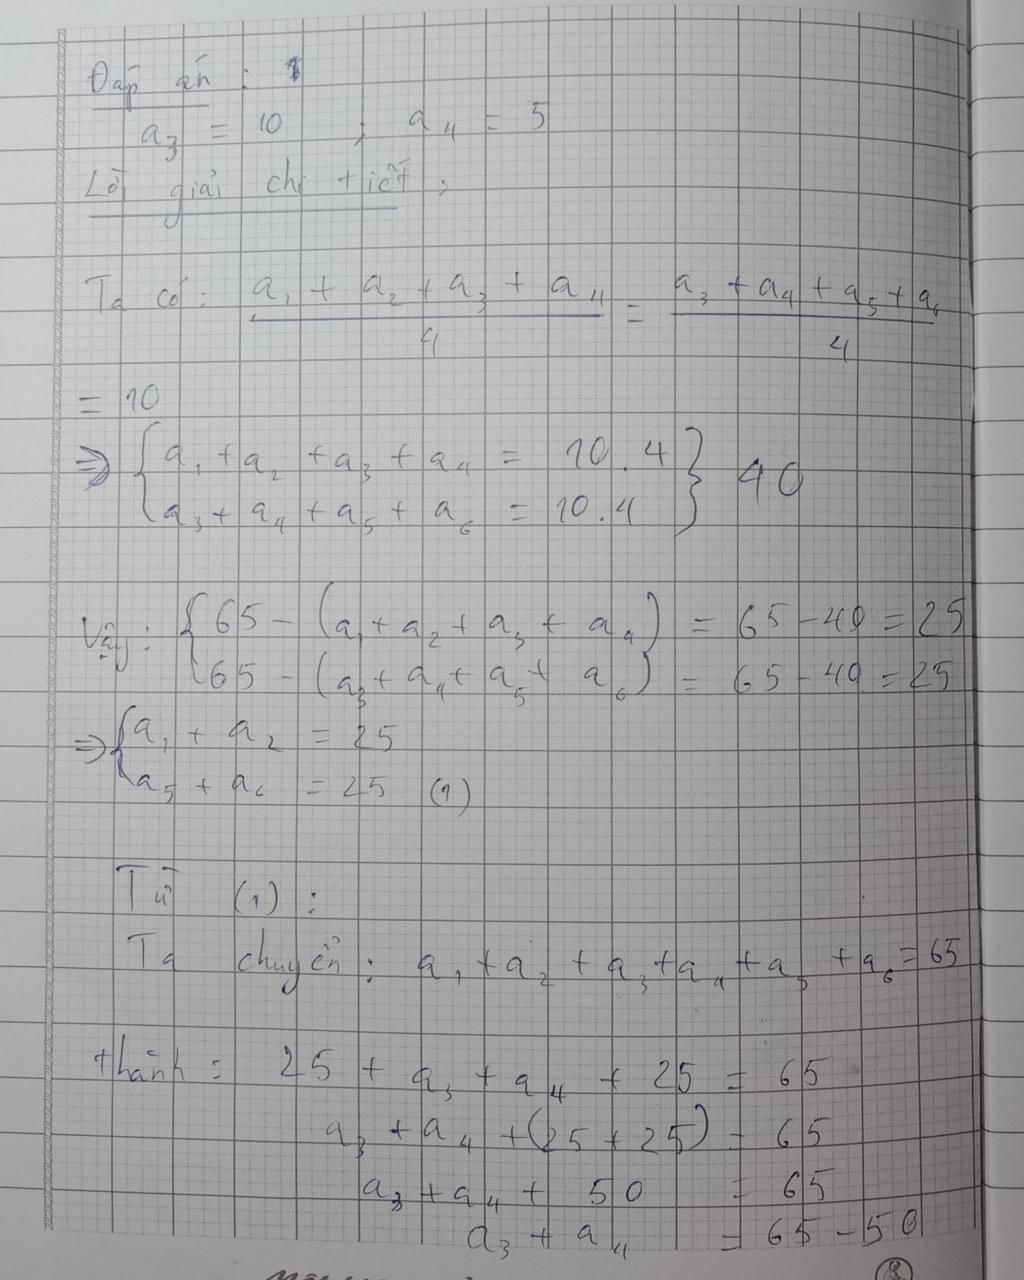 Đáp án :
a₃ = 10 ; a₄ = 5
Lời giải chi tiết :
Ta có: (a₁ + a₂ + a₃ + a₄)/4 = (a₃ + a₄ + a₅ + a₆)/4
= 10
⇒ { a₁ + a₂ + a₃ + a₄ = 10.4 } 40
{ a₃ + a₄ + a₅ + a₆ = 10.4 }
Vậy: { 65 - (a₁ + a₂ + a₃ + a₄) = 65 - 40 = 25
{ 65 - (a₃ + a₄ + a₅ + a₆) = 65 - 40 = 25
⇒ { a₁ + a₂ = 25
{ a₅ + a₆ = 25 (1)
Từ (1) :
Ta chuyển: a₁ + a₂ + a₃ + a₄ + a₅ + a₆ = 65
thành: 25 + a₃ + a₄ + 25 = 65
a₃ + a₄ + (25 + 25) = 65
a₃ + a₄ + 50 = 65
a₃ + a₄ = 65 - 50